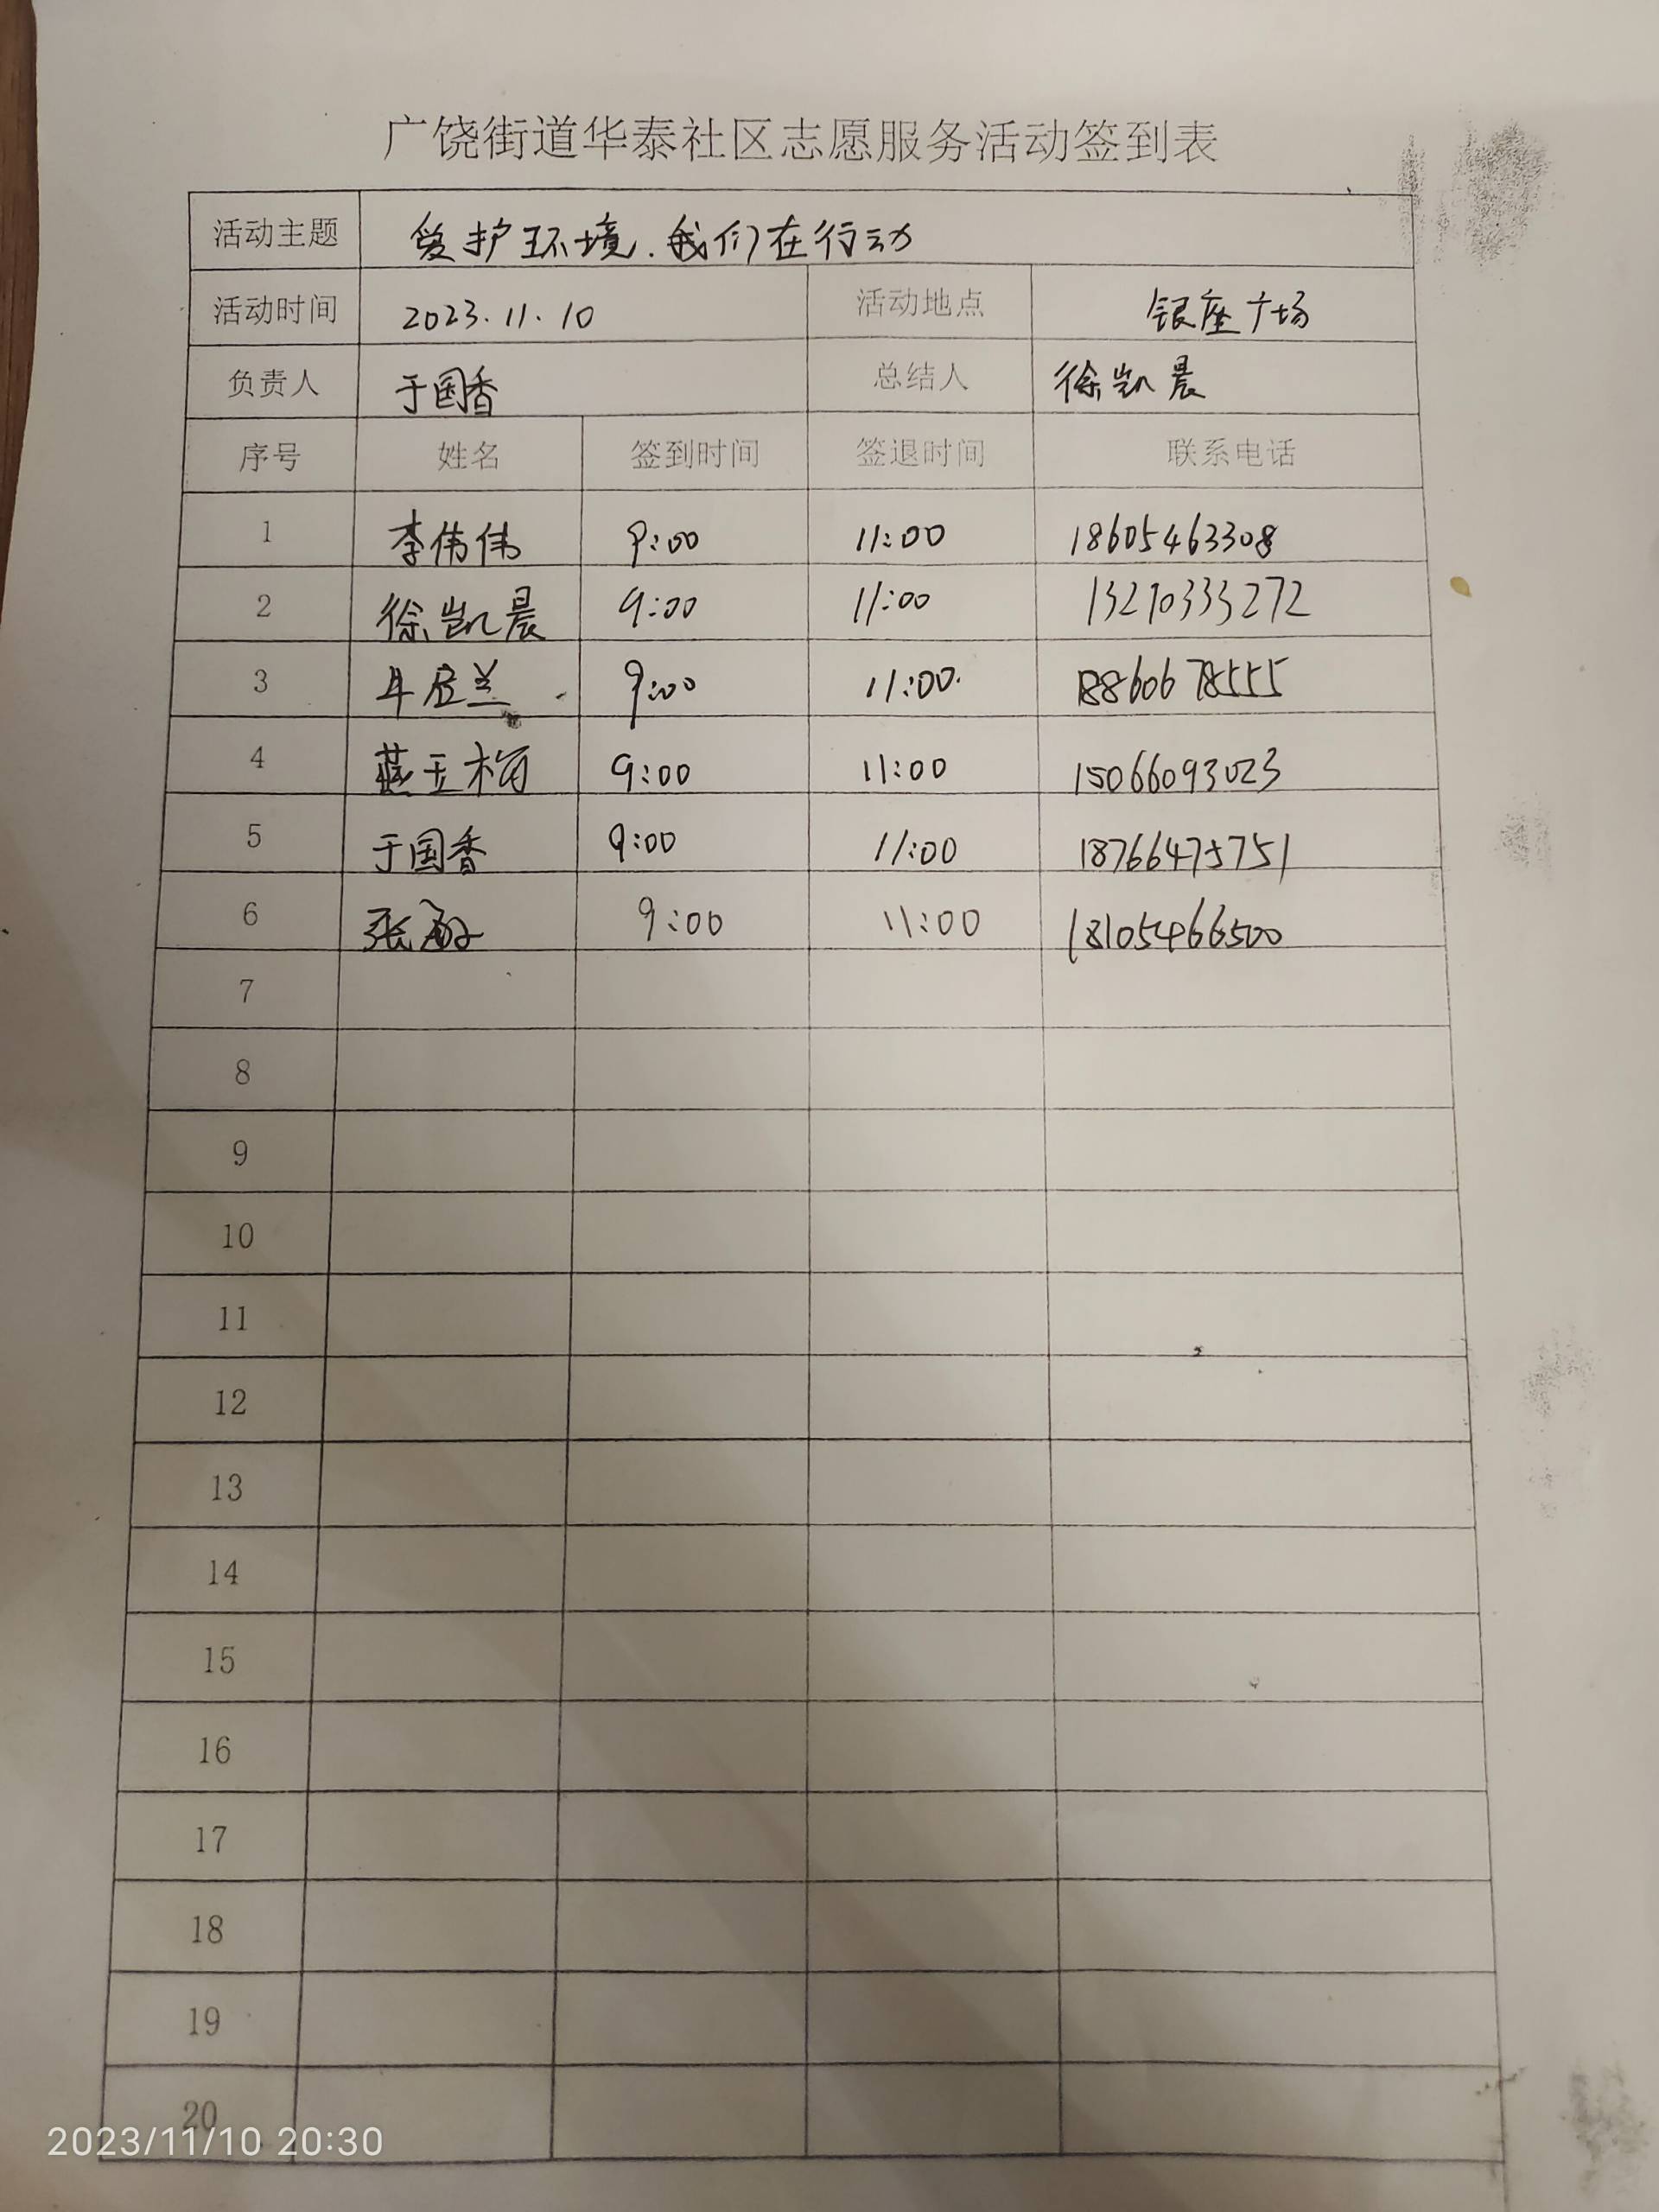 广饶街道华泰社区志愿服务活动签到表
活动主题 爱护环境.我们在行动
活动时间 2023.11.10 活动地点 银座广场
负责人 于国香 总结人 徐凯晨
序号 姓名 签到时间 签退时间 联系电话
1 李伟伟 9:00 11:00 18605463308
2 徐凯晨 9:00 11:00 13210333272
3 9:00 11:00 18860678555
4 燕玉梅 9:00 11:00 15066093023
5 于国香 9:00 11:00 18766475751
6 张敏 9:00 11:00 18105466500
7
8
9
10
11
12
13
14
15
16
17
18
19
20
2023/11/10 20:30